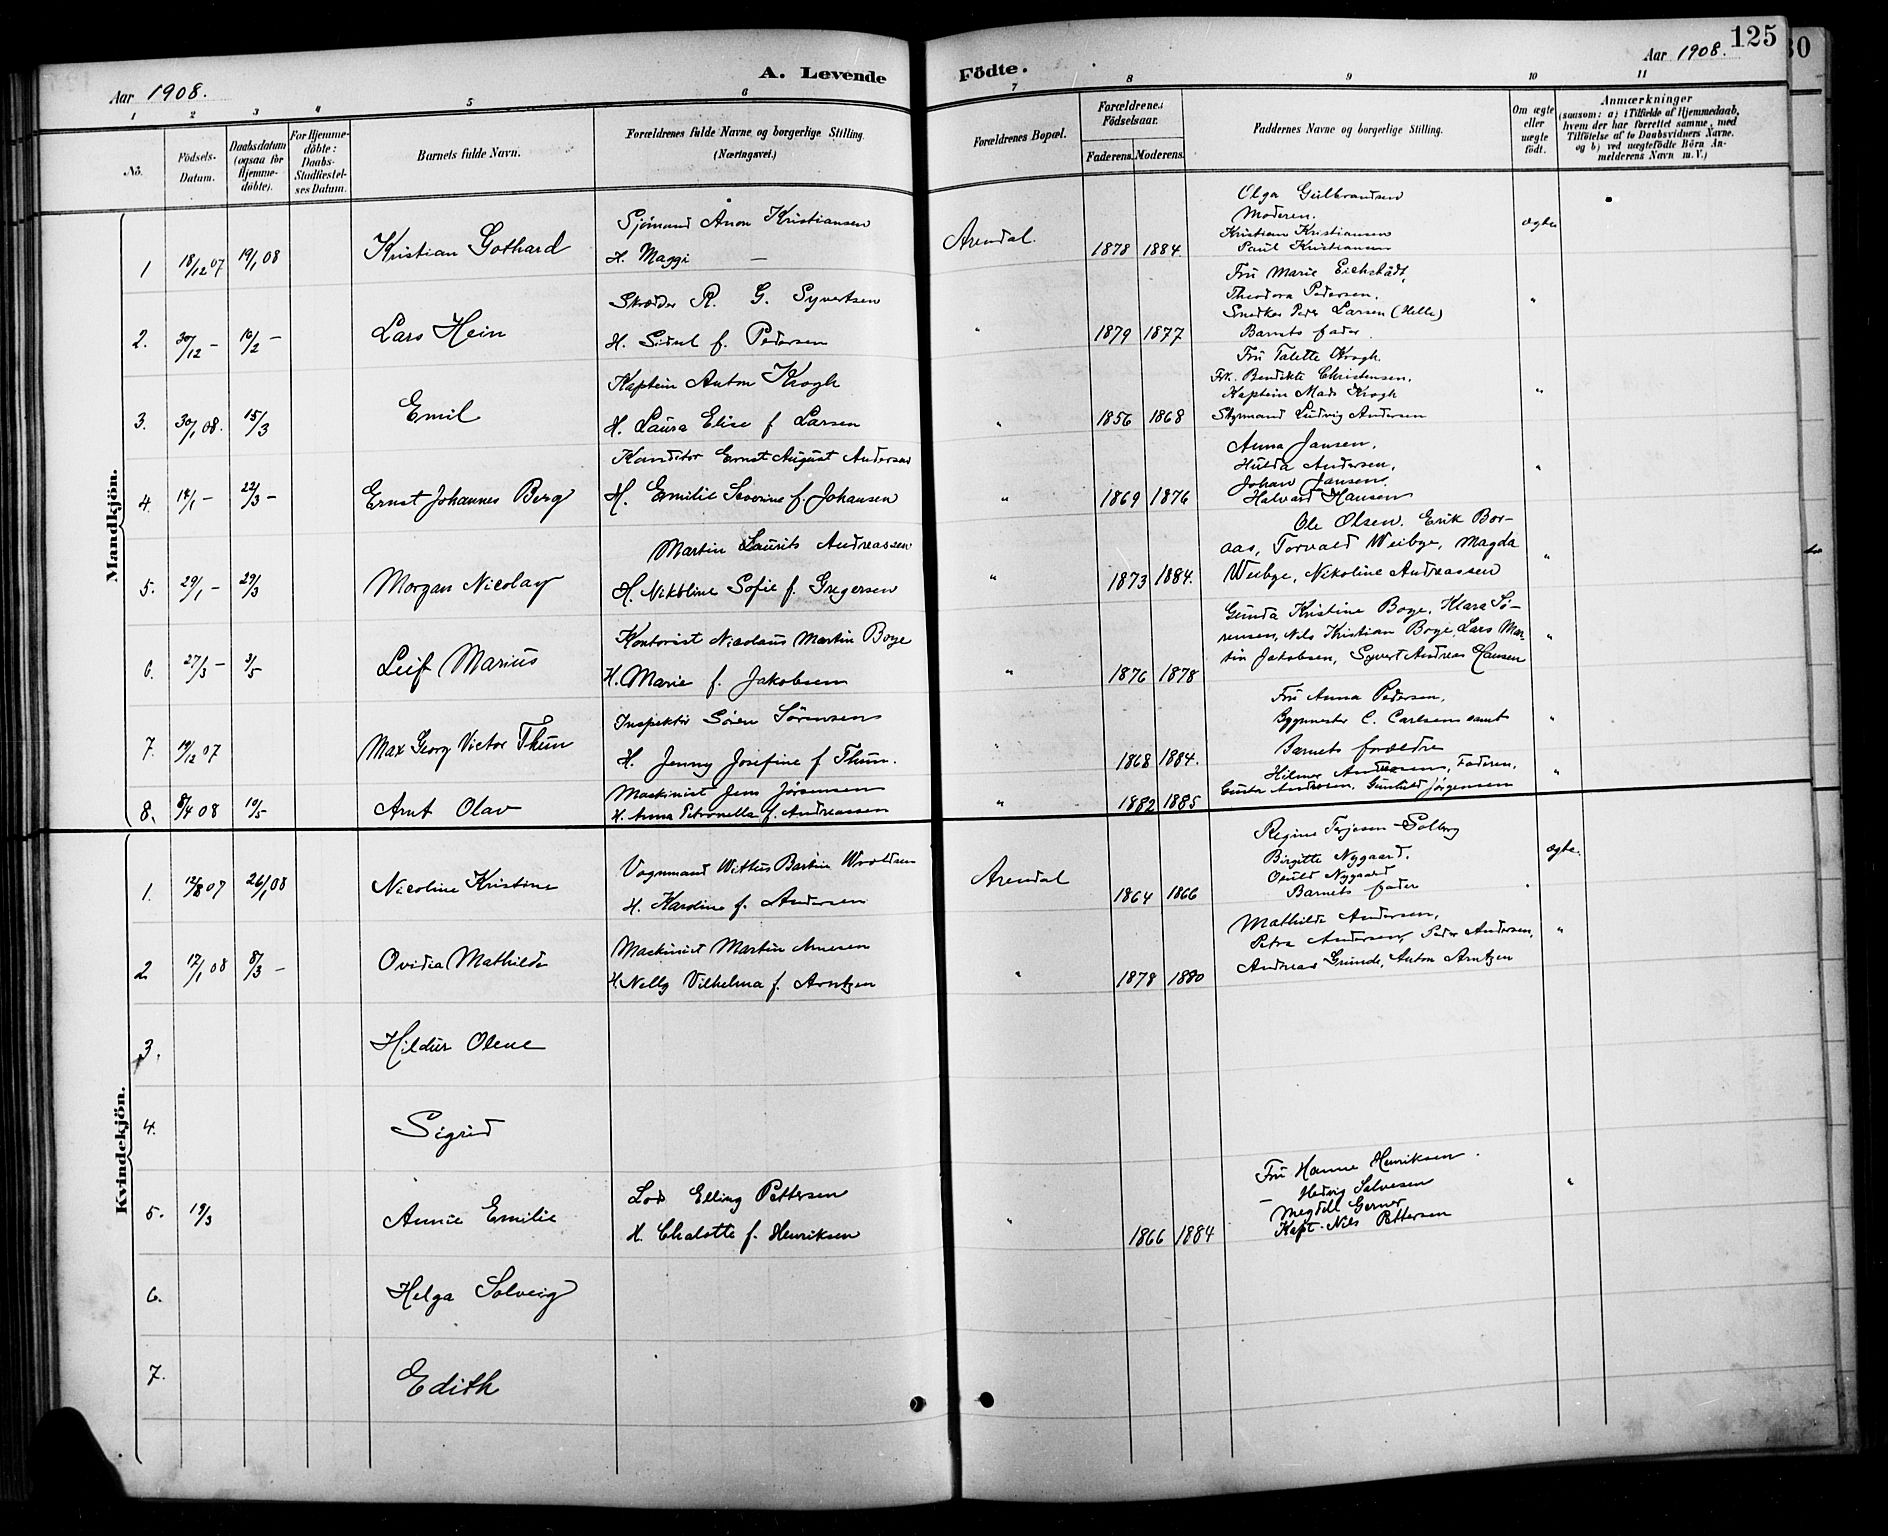 125
30
Aar 1908.
A. Levende
Födte.
Aar 1908.
1 2 3 4 5 6 7 8 9 10 11
No.
Födsels-
Datum.
Daabsdatum
(ogsaa for
Hjemme-
döbte).
For Hjemme-
döbte:
Daabs-
Stadfæstel-
ses Datum.
Barnets fulde Navn.
Forældrenes fulde Navne og borgerlige Stilling.
(Næringsvei.)
Forældrenes Bopæl.
Forældrenes
Födselsaar.
Faderens. Moderens.
Faddernes Navne og borgerlige Stilling.
Om ægte
eller
uægte
födt.
Anmærkninger
(saasom: a) i Tilfælde af Hjemmedaab,
hvem der har forrettet samme, med
Tilföielse af to Daabsvidners Navne.
og b) ved uægtefödte Börn An-
melderens Navn m. V.)
Mandkjön.
1 18/12 07 19/1 08 Kristian Gothard
Sjömand Aron Kristiansen
H. Maggi —
Arendal. 1878 1884.
Olga Gulbrandsen
Moderen.
Kristian Kristiansen
Paul Kristiansen
ægte
2. 30/12 — 16/2 — Lars Hein
Skrædder R. G. Syvertsen
H. Sidsel f. Pedersen
" 1879 1877
Fru Marie Eichstädt,
Theodora Pedersen,
Snedker Peder Larsen (Helle)
Barnets fader.
"
3. 30/1 08. 15/3 Emil
Kaptein Anton Krogh
H. Laura Elise f Larsen
" 1856 1868
Fru Talette Krogh.
Frk. Bendikte Christensen.
Kaptein Mads Krogh
Styrmand Ludvig Andersen
"
4. 14/1 — 22/3 — Ernst Johannes Berg
Konditor Ernst August Andersen
H. Emilie Severine f. Johansen
" 1869 1876
Anna Jansen,
Hulda Andersen,
Johan Jansen.
Halvard Hansen
"
5. 29/1 — 29/3 Morgan Nicolay
Martin Laurits Andreassen
H. Nikoline Sofie f. Gregersen
" 1873 1884.
Ole Olsen. Erik Bor-
aas, Torvald Weibye, Magda
Weibye, Nikoline Andreassen
"
6. 27/3 — 3/5 Leif Marius
Kontorist Nicolaus Martin Boye
H. Marie f. Jakobsen
" 1876 1878
Gunda Kristine Boye, Klara Sö-
rensen, Nils Kristian Boye, Lars Mar
tin Jakobsen, Syvert Andreas Hansen
"
7. 19/12 07 Max Georg Victor Thun
Inspektör Sören Sörensen
H. Jenny Josefine f Thun.
" 1868 1884.
Fru Anna Pedersen,
Bygmester C. Carlsen samt
Barnets forældre
"
8. 8/4 08 10/5 Arnt Olav
Maskinist Jens Jörgensen
H. Anna Petronella f. Andreassen
" 1882 1885
Hilmer Andreassen, Faderen,
Gunhild Jörgensen
"
Kvindekjön.
1. 12/8 07 26/1 08 Nicoline Kristine
Vognmand Wittus Bartin
H. Karoline f. Andersen
Arendal 1864 1866
Regine Terjesen Solberg
Birgitte Nygaard.
Nygaard
Barnets fader
ægte.
2 12/1 08 8/3 — Ovidia Mathilde
Maskinist Martin Arnesen
H. Nelly Vilhelma f. Arntzen
" 1878 1880
Mathilde Andersen,
Petra Andersen, Peder Andersen,
Andreas Grunde, Anton Arntzen
"
3. Hildur Olene
4. Sigrid
5. 19/3 Annie Emilie
Lods Elling Pettersen
H. Chalotte f. Henriksen
" 1866 1884
Fru Hanne Henriksen.
— Hedvig Salvesen
Megdell Gerner
Kapt. Nils Pettersen
"
6. Helga Solveig
7. Edith